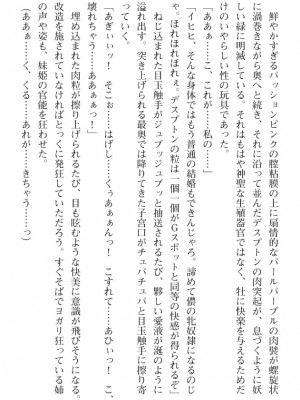 鮮やかすぎるパッションピンクの膣粘膜の上に扇情的なパールパープルの肉襞が螺旋状
に渦巻きながら奥へと続き、それに沿って並んだデスプトンの肉突起が、息づくように妖
しい緑に明滅している。それはもはや神聖な生殖器官ではなく、牡に快楽を与えるためだ
けのいやらしい性の玩具であった。
「ああぁ……こ、これが……私の……」
「イヒヒ、そんな身体ではもう普通の結婚もできんじゃろ。諦めて儂の牝奴隷になるのじ
ゃ。ほれほれほれぇ。デスプトンの粒は一個一個がGスポットと同等の快感が得られるぞ」
ねじ込まれた目玉触手がジュブッジュブッと抽送されるたび、夥しい愛液が涎のように
溢れ出す。突き上げられる最奥では降りてきた子宮口がチュパチュパと目玉触手に擦り寄
っていく。
「あぎぃぃっ！　そこぉ……はげし……くぅあぁぁんっ！　こすれて……あひぃっ！　こ、
壊れちゃう……ああぁぁっ！」
埋め込まれた肉粒が擦り上げられるたび、目も眩むような快美に意識が飛びそうになる。
改造を施されていなければとっくに発狂していただろう。すぐそばでヨガリ狂っている姉
の声や姿も、妹姫の官能を狂わせる。
（ああぁ……く、くるぅ……あれが……きちゃう……っ）